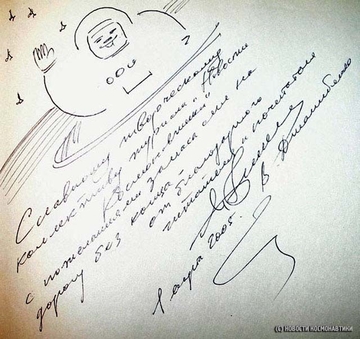 Славному творческому
коллективу журнала "Новости
Космонавтики"
с пожеланием запаса сил на
дорогу без конца
от благодарного
читателя и почитателя
В Джанибеков
1 2005.
(c) НОВОСТИ КОСМОНАВТИКИ